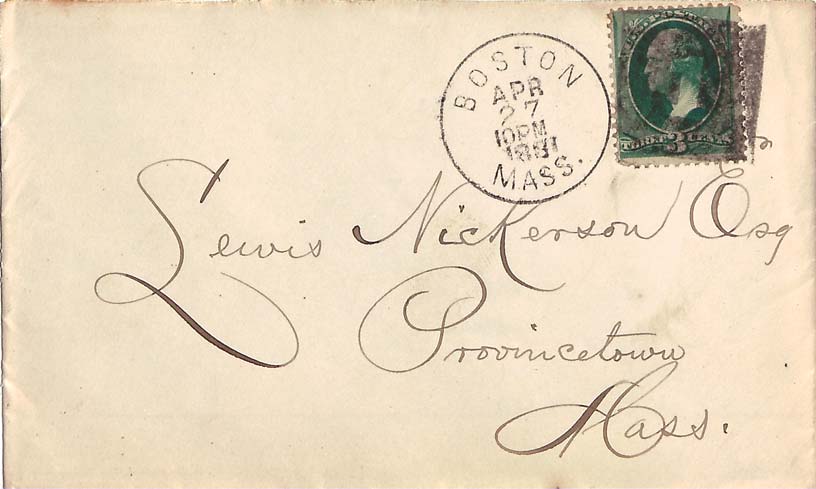 BOSTON
APR
27
10PM
1881
MASS.
THREE 3 CENTS
Lewis Nickerson Esq
Provincetown
Mass.